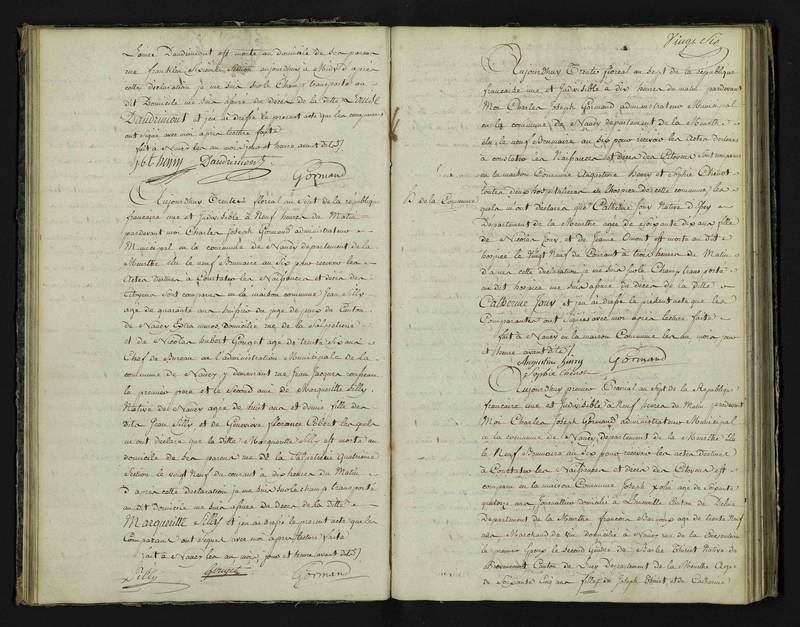 Louise Daudrimont est morte au domicile de ses parens
rue franklin Sixieme Section aujourdhuy à Midy d'après
cette déclaration je me suis sur le Champ transporté au
dit Domicile me suis assuré du décès de la ditte Louise
Daudrimont et j'en ai dressé le present acte que les comparans
ont signé avec moi après lecture faite
fait à Nancy les an mois jour et heure avant dits
Daudrimont
Gormand
Aujourdhuy Trente floréal an Sept de la république
francaise une et Indivisible à Neuf heures du Matin
pardevant moi Charles Joseph Gormand administrateur
Municipal en la commune de Nancy departement de la
Meurthe élu le neuf Brumaire an Six pour recevoir les
Actes destinés à Constater les Naissances et décès des
Citoyens sont comparus en la maison commune Jean Silly
age de quarante ans huissier du juge de paix du Canton
de Nancy Extra muros, domicilié rue de la Salpetriere
et de Nicolas hubert Gouget age de trente Six ans
Chef de Bureau de l'administration Municipale de la
commune de Nancy y demeurant rue Jean Jacques
le premier pere et le Second ami de Marguerite Silly
Native de Nancy agee de huit ans et demie fille des
dits Jean Silly et de Genevieve florence Cobert lesquels
m'ont déclaré que la ditte Marguerite Silly est morte au
domicile de ses parens rue de la Salpetriere quatrieme
Section le vingt Neuf du courant à dix heures du Matin
d'apres cette declaration je me suis sur le champ transporté
au dit domicile me suis assuré du décès de la ditte
Marguerite Silly et j'en ai dressé le present acte que les
Comparans ont signé avec moi apres lecture faite
fait à Nancy les an mois, jour et heure avant dits
Silly Gouget Gormand
Vingt Six
Aujourdhuy Trente floréal an Sept de la république
francaise une et Indivisible à dix heures du matin pardevant
Moi Charles Joseph Gormand administrateur Municipal
en la commune de Nancy departement de la Meurthe
élu le neuf Brumaire an Six pour recevoir les Actes destinés
à constater les Naissances et décès des Citoyens sont comparus
en la maison Commune Augustine henry et Sophie
toutes deux hospitalieres en l'hospice de cette commune les
quels m'ont déclaré que Catherine Jouy Native d'
Departement de la Meurthe agée de Soixante dix ans fille
de Nicolas Jouy et de Jeanne est morte au dit
hospice le Vingt Neuf du Courant à trois heures du Matin
d'apres cette declaration je me suis sur le Champ transporté
au dit hospice me suis assuré du décès de la ditte
Catherine Jouy et j'en ai dressé le présent acte que les
Comparantes ont Signé avec moi apres lecture faite
fait à Nancy en la maison Commune les an mois jour
et heure avant dits
Augustine henry Gormand
Sophie
Aujourdhuy premier Prairial an Sept de la Republique
francaise une et Indivisible à Neuf heures du Matin pardevant
Moi Charles Joseph Gormand administrateur Municipal
en la commune de Nancy departement de la Meurthe élu
le Neuf Brumaire an Six pour recevoir les actes destinés
à Constater les Naissances et décès des Citoyens est
comparu en la maison Commune Joseph age de Soixante
ans Journallier domicilié à Canton de
Departement de la Meurthe francois age de trente Neuf
ans Marchand de vin domicilié à Nancy rue de la
le premier le Second Gendre de Native de
Canton de Departement de la Meurthe Agée
de Soixante Cinq ans fille de Joseph et de Catherine